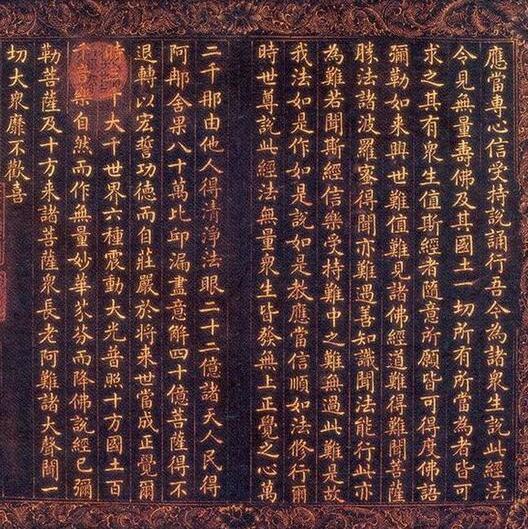 應當專心信受持說誦行吾今為諸眾生說此經法
今見無量壽佛及其國土一切所有所當為者皆可
求之其有眾生值斯經者隨意所願皆可得度佛語
彌勒如來興世難值難見諸佛經道難得難聞菩薩
勝法諸波羅蜜得聞亦難遇善知識聞法能行此亦
為難若聞斯經信樂受持難中之難無過此難是故
我法如是作如是說如是教應當信順如法修行爾
時世尊說此經法無量眾生皆發無上正覺之心萬
二千那由他人得清淨法眼二十二億諸天人民得
阿那含果八十萬比邱漏盡意解四十億菩薩得不
退轉以宏誓功德而自莊嚴於將來世當成正覺爾
時三千大千世界六種震動大光普照十方國土百
千音樂自然而作無量妙華芬芬而降佛說經已彌
勒菩薩及十方來諸菩薩眾長老阿難諸大聲聞一
切大眾靡不歡喜